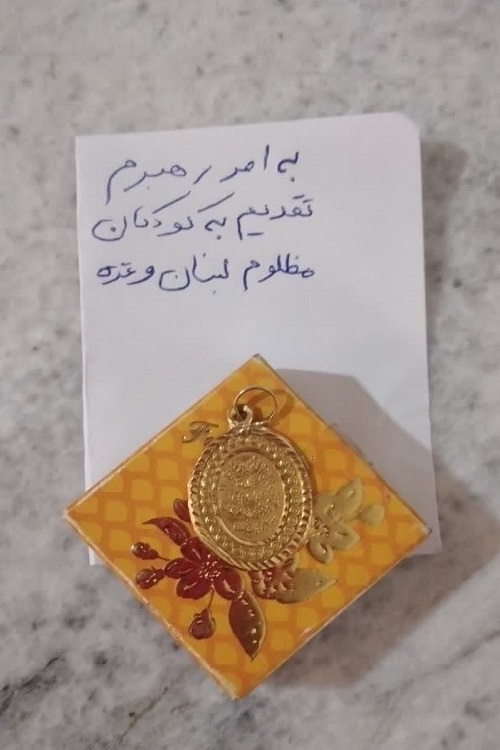 به امر رهبرم
تقدیم به کودکان
مظلوم لبنان و غزه